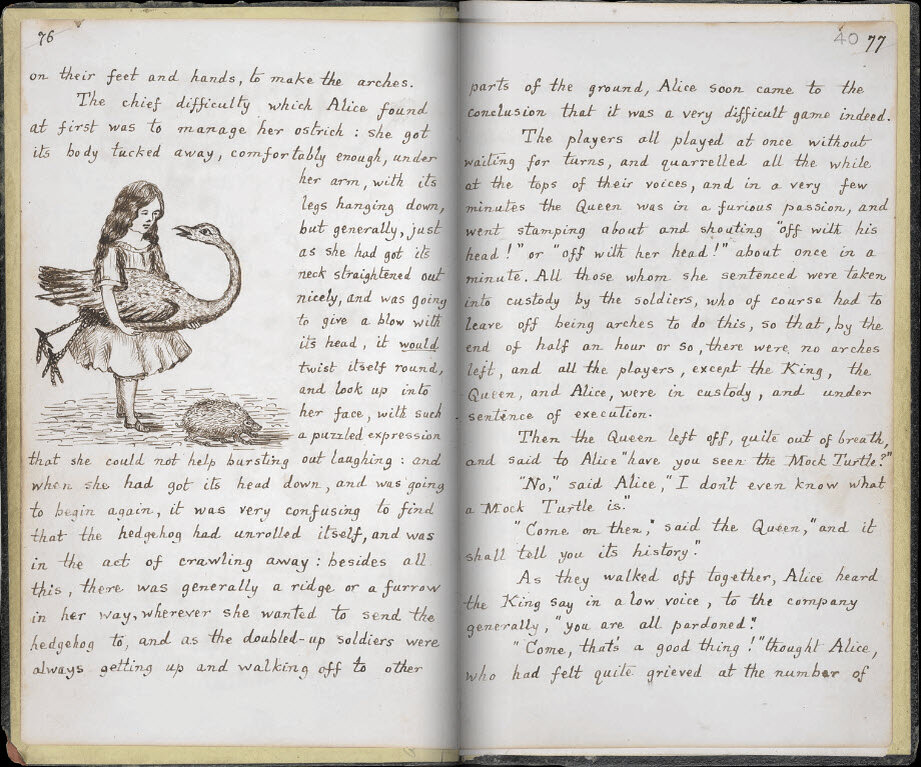 76
on their feet and hands, to make the arches.
The chief difficulty which Alice found
at first was to manage her ostrich : she got
its body tucked away, comfortably enough, under
her arm, with its
legs hanging down,
but generally, just
as she had got its
neck straightened out
nicely, and was going
to give a blow with
its head, it would
twist itself round,
and look up into
her face, with such
a puzzled expression
that she could not help bursting out laughing : and
when she had got its head down, and was going
to begin again, it was very confusing to find
that the hedgehog had unrolled itself, and was
in the act of crawling away : besides all
this, there was generally a ridge or a furrow
in her way, wherever she wanted to send the
hedgehog to, and as the doubled-up soldiers were
always getting up and walking off to other
40 77
parts of the ground, Alice soon came to the
conclusion that it was a very difficult game indeed.
The players all played at once without
waiting for turns, and quarrelled all the while
at the tops of their voices, and in a very few
minutes the Queen was in a furious passion, and
went stamping about and shouting "off with his
head!" or "off with her head!" about once in a
minute. All those whom she sentenced were taken
into custody by the soldiers, who of course had to
leave off being arches to do this, so that, by the
end of half an hour or so, there were no arches
left, and all the players, except the King, the
Queen, and Alice, were in custody, and under
sentence of execution.
Then the Queen left off, quite out of breath,
and said to Alice "have you seen the Mock Turtle?"
"No," said Alice, "I don't even know what
a Mock Turtle is."
"Come on then," said the Queen, "and it
shall tell you its history."
As they walked off together, Alice heard
the King say in a low voice, to the company
generally, "you are all pardoned."
"Come, that's a good thing!" thought Alice,
who had felt quite grieved at the number of